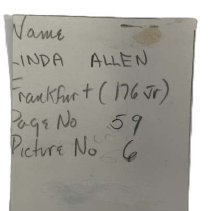 Name
LINDA ALLEN
Frankfurt (176 Jr)
Page No 59
Picture No 6